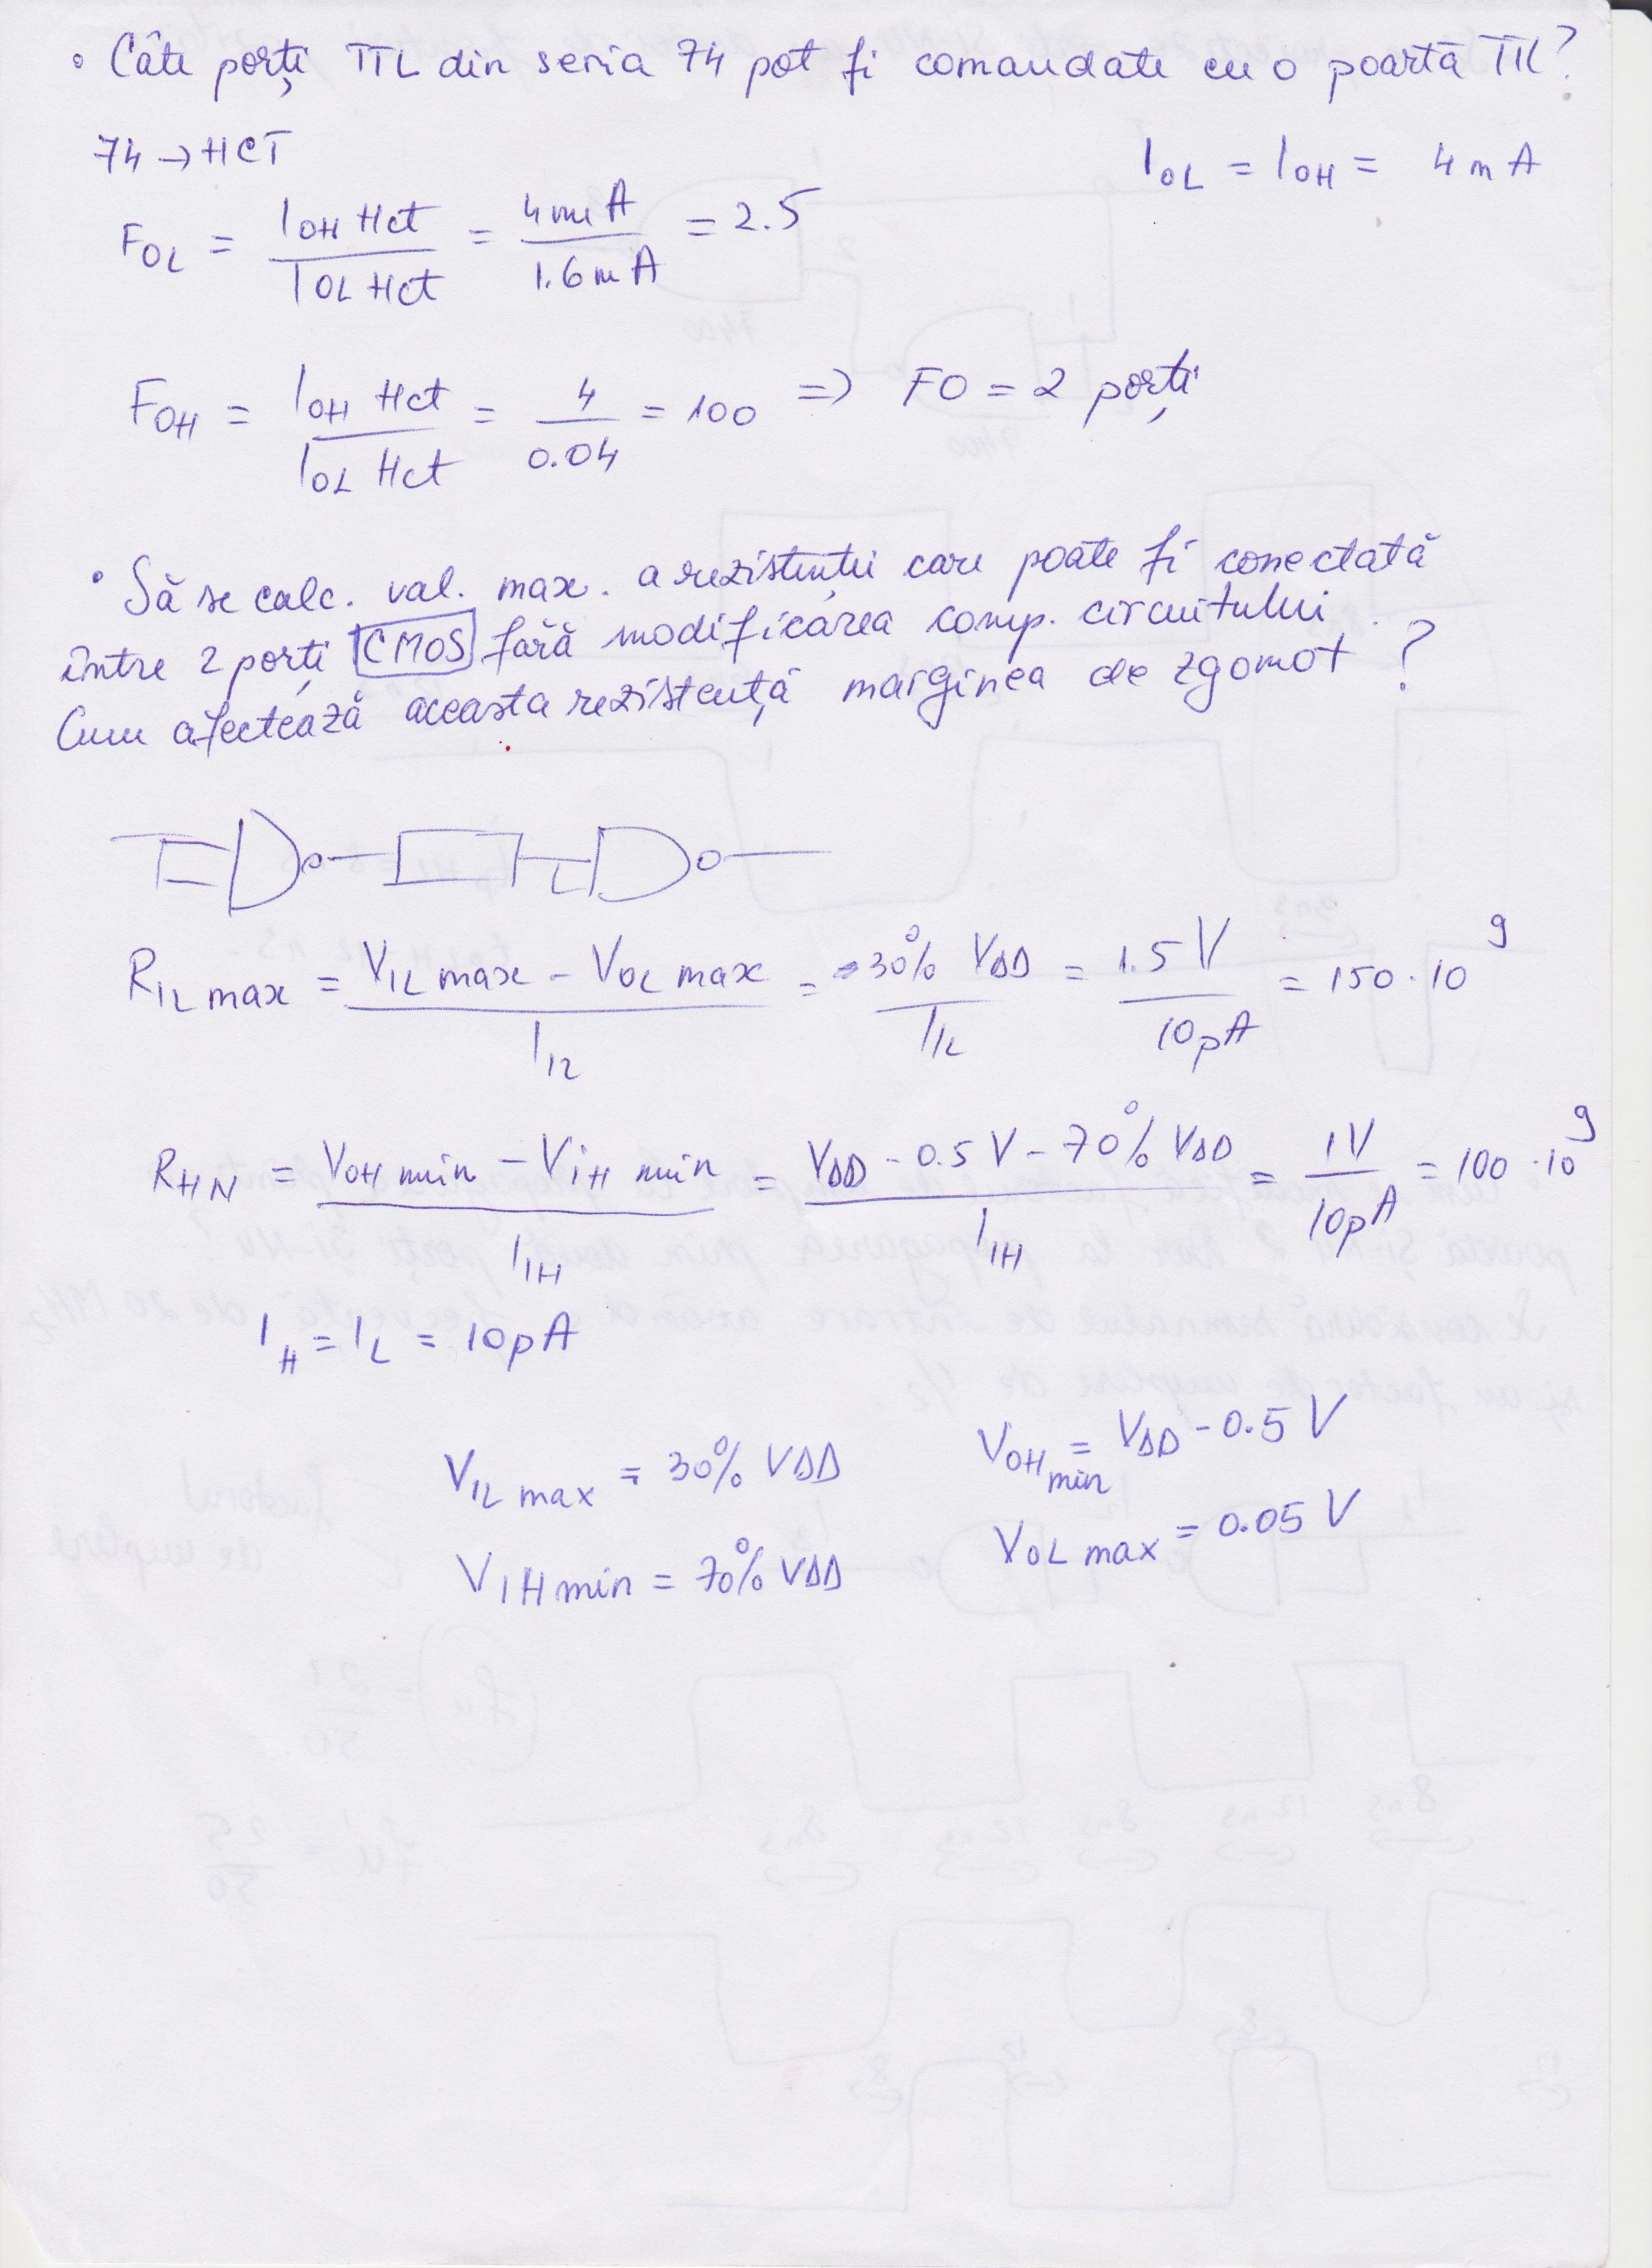 • Câte porți TTL din seria 74 pot fi comandate cu o poartă TTL?
74 → HCT
I_OL = I_OH = 4 mA
F_OL = I_OH Hct / I_OL Hct = 4 mA / 1.6 mA = 2.5
F_OH = I_OH Hct / I_OL Hct = 4 / 0.04 = 100 => FO = 2 porți
• Să se calc. val. max. a rezistenței care poate fi conectată
între 2 porți CMOS fără modificarea comp. circuitului
Cum afectează aceasta rezistență marginea de zgomot ?
R_IL max = (V_IL max - V_OL max) / I_IL = 30% VDD / I_IL = 1.5 V / 10 pA = 150 · 10^9
R_HN = (V_OH min - V_iH min) / I_IH = (VDD - 0.5 V - 70% VDD) / I_IH = 1V / 10pA = 100 · 10^9
I_H = I_L = 10 pA
V_IL max = 30% VDD
V_OH min = VDD - 0.5 V
V_IH min = 70% VDD
V_OL max = 0.05 V